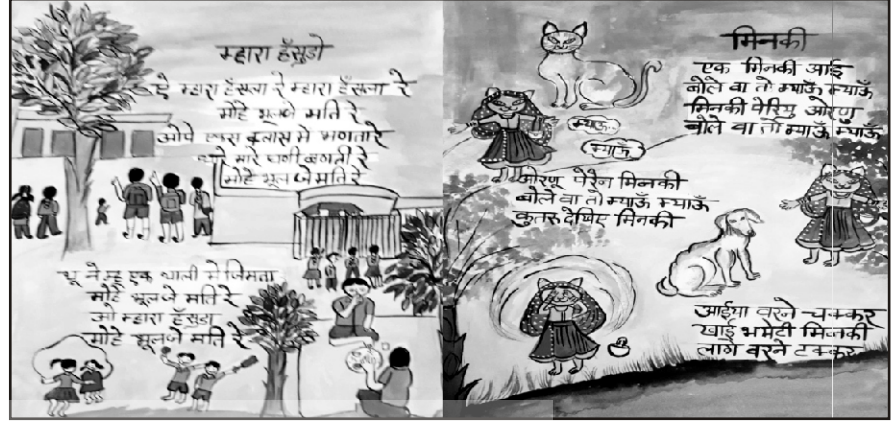 म्हारा हँसुडो
ऐ म्हारा हँसजा रे म्हारा हँसजा रे
मोहे भूलजे मति रे
ओपे एकस क्लास में भणता रे
थारे मारे घणी बणती रे
मोहे भूलजे मति रे
थू ने म्हू एक थाली में जिमता
मोहे भूलजे मति रे
ओ म्हारा हँसुडा
मोहे भूलजे मति रे
मिनकी
एक मिनकी आई
बोले वा तो म्याऊँ म्याऊँ
मिनकी पेरियु ओरणु
बोले वा तो म्याऊँ म्याऊँ
म्याऊँ
म्याऊँ
ओरणू पेरेन मिनकी
बोले वा तो म्याऊँ म्याऊँ
कुतरु देखिए मिनकी
आईया वरने चक्कर
खाई भमेटी मिनकी
लागे वरने टक्कर